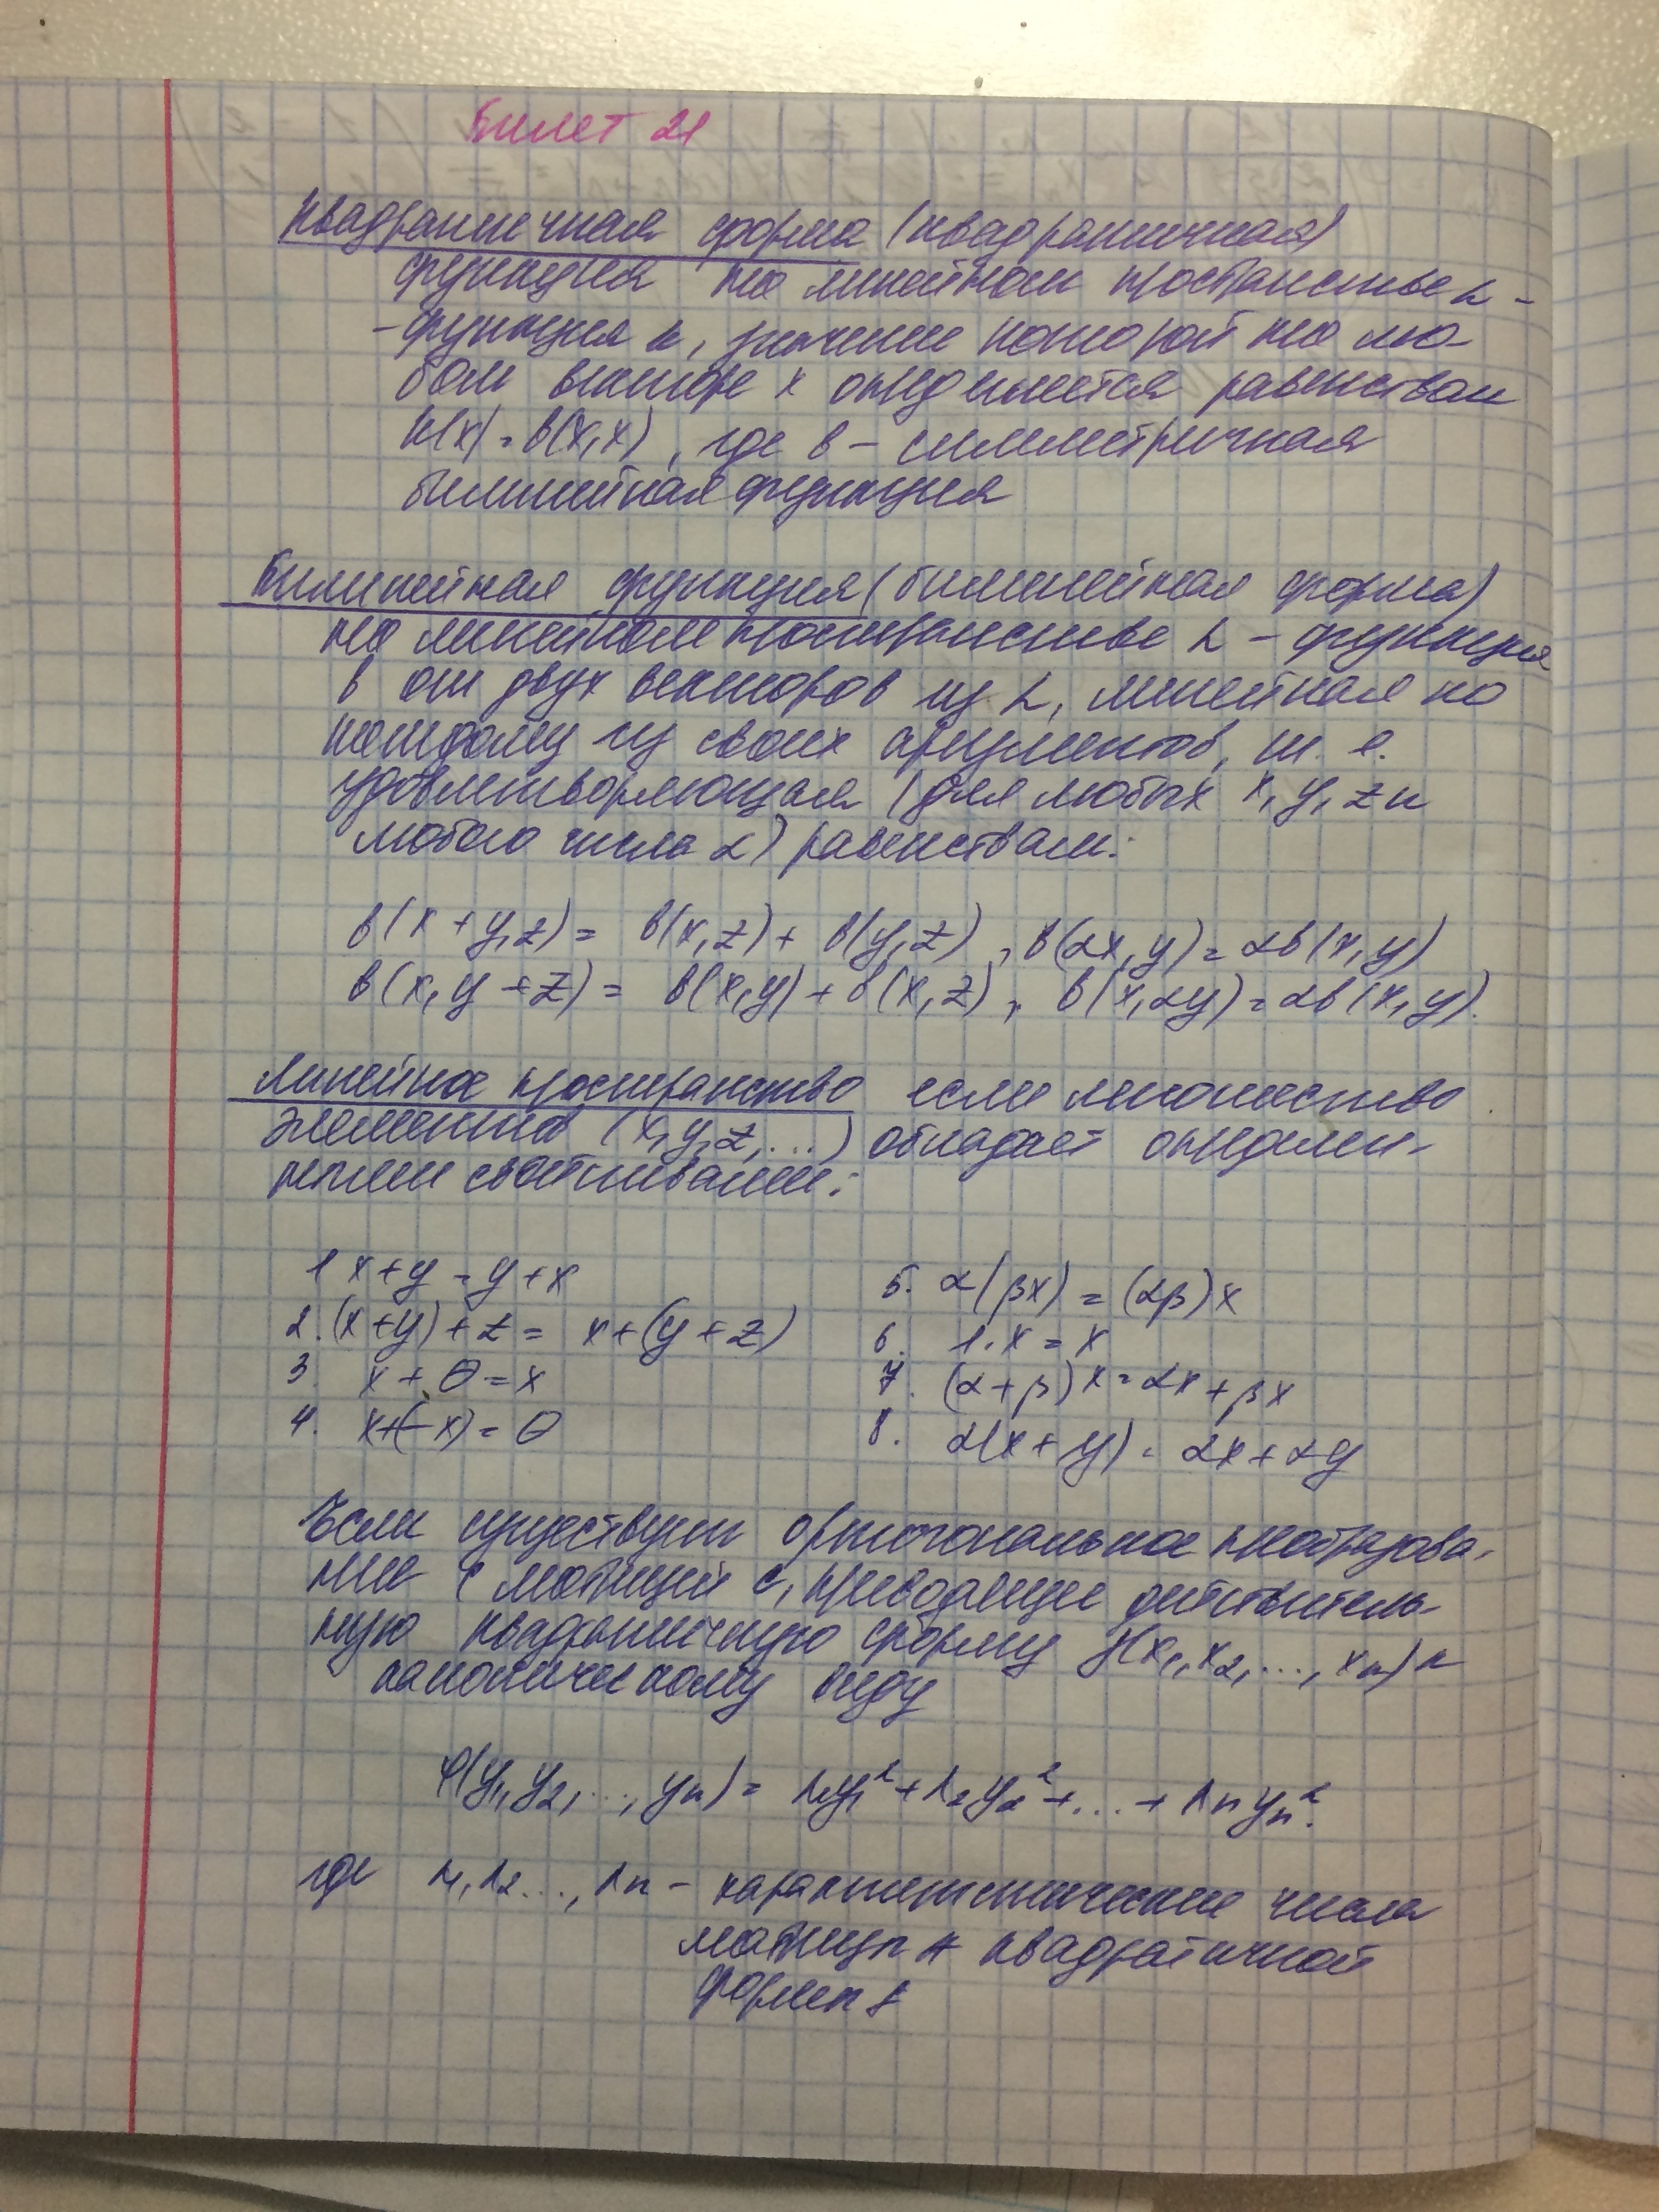 Билет 21
Квадратичная форма (квадратичная)
функция на линейном простанстве L -
- функция к, значение которой на лю-
бом векторе x определяется равенством
к(x) = в(x, x), где в - симметричная
билинейная функция
Билинейная функция (билинейная форма)
на линейном пространстве L - функция
в от двух векторов из L, линейная по
каждому из своих аргументов, т. е.
удовлетворяющая (для любых x, y, z и
любого числа α) равенствам:
в(x + y, z) = в(x, z) + в(y, z), в(αx, y) = αв(x, y)
в(x, y + z) = в(x, y) + в(x, z), в(x, αy) = αв(x, y).
Линейное пространство если множество
элементов (x, y, z, ...) обладает определен-
ными свойствами:
1 x + y = y + x
2. (x + y) + z = x + (y + z)
3. x + θ = x
4. x + (-x) = θ
5. α(βx) = (αβ)x
6. 1·x = x
7. (α + β)x = αx + βx
8. α(x + y) = αx + αy
Если существует ортогональное преобразова-
ние с матицей С, приводящее действитель-
ную квадратичную форму f(x₁, x₂, ..., xₙ) к
каноническому виду
φ(y₁, y₂, ..., yₙ) = λ₁y₁² + λ₂y₂² + ... + λₙyₙ².
где λ₁, λ₂ ..., λₙ - характеристические числа
матицы A квадратичной
формы f